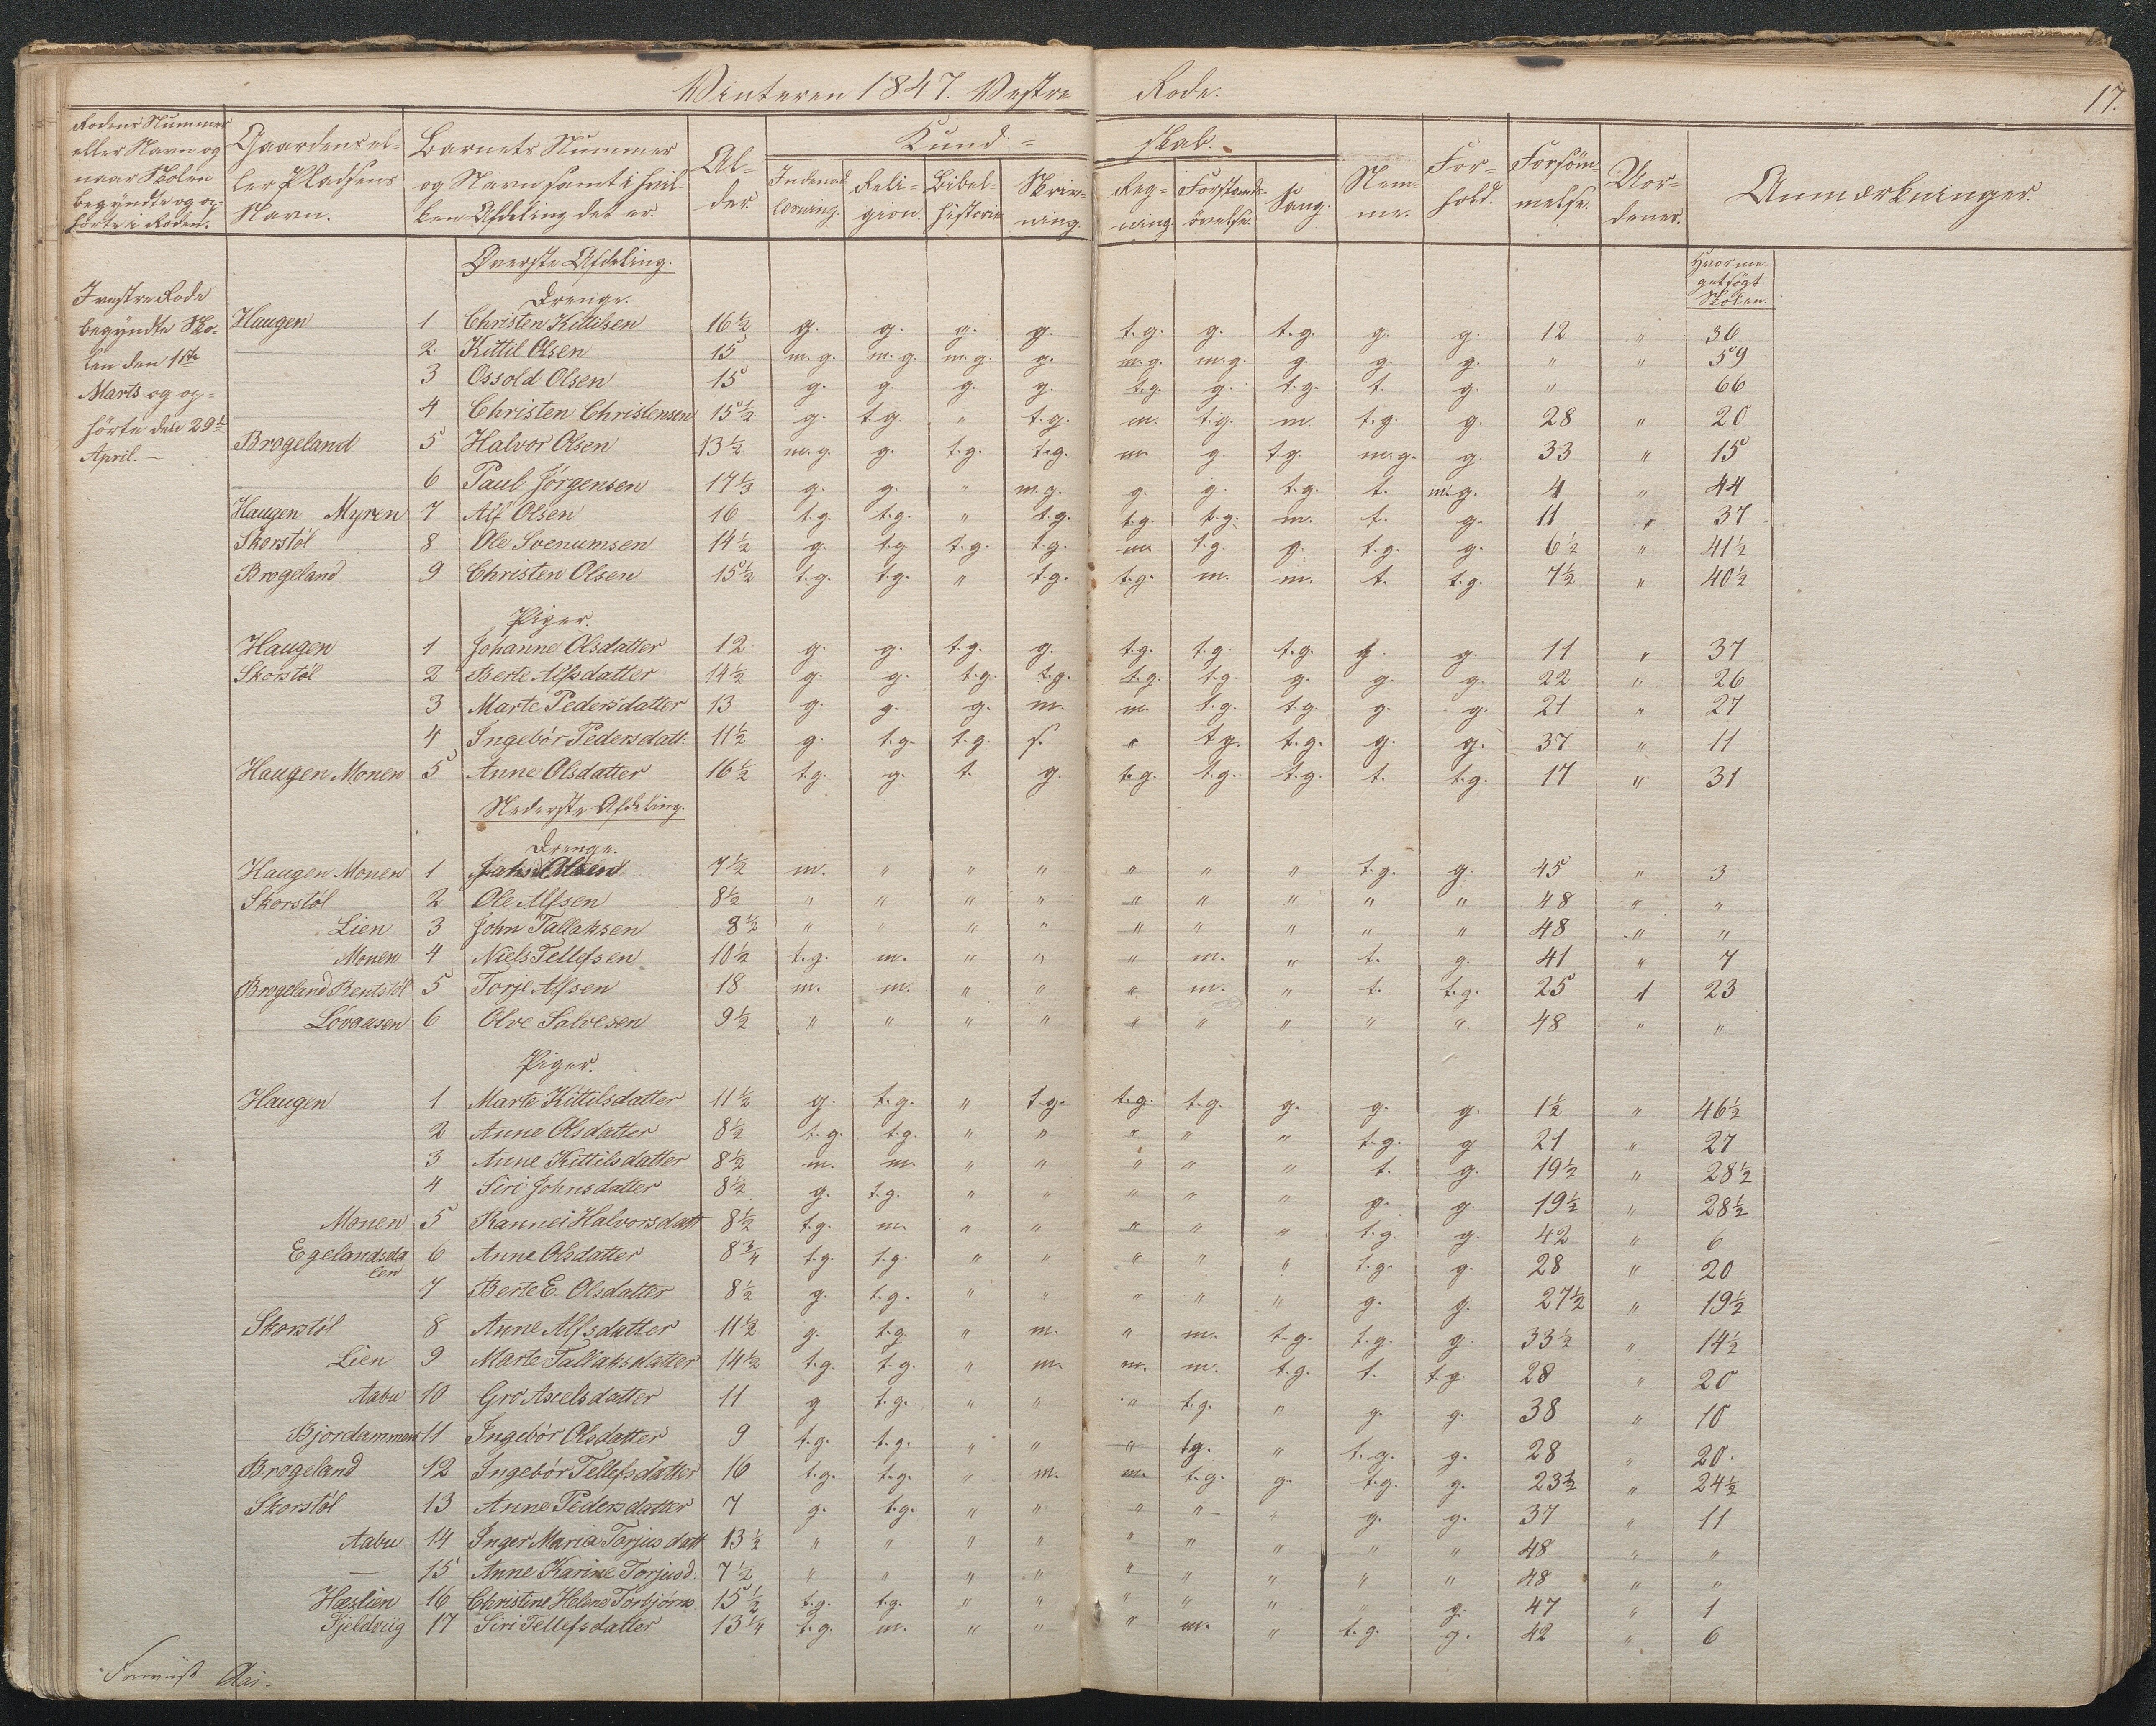 Vinteren 1847. Vestre Rode. 17.
Rodens Nummer eller Navn og naar Skolen begyndte og ophørte i Roden. | Gaardens eller Pladsens Navn. | Barnets Nummer og Navn samt i hvilken Afdeling det er. | Alder. | Kundskab. | Nemme. | Forhold. | Forsømmelse. | Uordener. | Anmærkninger.
Indenadlæsning. | Religion. | Bibelhistorie | Skrivning. | Regning. | Forstandsøvelse. | Sang.
Øverste Afdeling.
Hvormeget søgt Skolen.
I vestre Rode
begyndte Sko-
len den 1ste
Marts og op-
hørte den 29de
April. —
Drenge.
Haugen 1 Christen Kittilsen 16½ g. g. g. g. t.g. g. t.g. g. g. 12 " 36
2. Kittil Olsen 15 m.g. m.g. m.g. g. m.g. m.g. g. g. g. " " 59
3 Ossold Olsen 15 g. g. g. g. t.g. g. t.g. t. g. " 66
4 Christen Christensen 15½ g. t.g. " t.g. m. t.g. m. t.g. g. 28 " 20
Brogeland 5 Halvor Olsen 13½ m.g. g. t.g. t.g. m. g. t.g. m.g. g. 33 " 15
6 Paul Jørgensen 17⅓ g. g. " m.g. g. g. t.g. t. m.g. 4 " 44
Haugen Myren 7 Alf Olsen 16 t.g. t.g. " t.g. t.g. t.g. m. t. g. 11 " 37
Skorstøl 8 Ole Svenumsen 14½ g. t.g t.g. t.g. m. t.g. g. t.g. g. 6½ " 41½
Brogeland 9 Christen Olsen 15½ t.g. t.g. " t.g. t.g. m. m. t. t.g. 7½ " 40½
Piger.
Haugen 1 Johanne Olsdatter 12 g. g. t.g. g. t.g. t.g. t.g. g. g. 11 " 37
Skorstøl 2 Berte Alfsdatter 14½ g. g. t.g. t.g. t.g. t.g. g. g. g. 22 " 26
3 Marte Pedersdatter 13 g. g. g. m. m. t.g. t.g. g. g. 21 " 27
4 Ingebór Pedersdatt. 11½ g. t.g. t.g. s. " t.g. t.g. g. g. 37 " 11
Haugen Monen 5 Anne Olsdatter 16½ t.g. g. t. g. t.g. t.g. t.g. t. t.g. 17 " 31
Nederste Afdeling.
Drenge.
Haugen Monen 1 John Olsen 7½ m. " " " " " " t.g. g. 45 " 3
Skorstøl 2 Ole Alfsen 8½ " " " " " " " " " 48 " "
Lien 3 John Tallaksen 8½ " " " " " " " " " 48 " "
Monen 4 Niels Tellefsen 10½ t.g. m. " " " m. " t. g. 41 " 7
Brogeland Rentstøl 5 Torje Alfsen 18 m. m. " " " m. " t. t.g. 25 1 23
Lovaasen 6 Olve Salvesen 9½ " " " " " " " " " 48 " "
Piger.
Haugen 1 Marte Kittilsdatter 11½ g. t.g. " t.g. t.g. t.g. g. g. g. 1½ " 46½
2 Anne Olsdatter 8½ t.g. t.g. " " " " " t.g. g 21 " 27
3 Anne Kittilsdatter 8½ m. m " " " " " t. g. 19½ " 28½
4 Siri Johnsdatter 8½ g. t.g. " " " " " g. g. 19½ " 28½
Monen 5 Rannei Halvorsdatt 8½ t.g. m. " " " " " t.g. g. 42 " 6
Egelandsdalen 6 Anne Olsdatter 8¾ t.g. t.g. " " " " " t.g. g. 28 " 20
7 Berte E. Olsdatter 8½ g. t.g. " " " " " g. g. 27½ " 19½
Skorstøl 8 Anne Alfsdatter 11½ g. t.g. " m. " m. t.g. t.g. g. 33½ " 14½
Lien 9 Marte Tallaksdatter 14½ t.g. t.g. " m m. m. t.g. t. t.g. 28 " 20
Aabu 10 Gro Axelsdatter 11 g t.g. " " " t.g. " g. g. 38 " 10
Bjordammen 11 Ingebór Olsdatter 9 t.g. t.g. " " " t.g. " t.g. g. 28 " 20.
Brogeland 12 Ingebór Tellefsdatter 16 t.g. t.g. " m. m. t.g. g. t.g. g. 23½ " 24½
Skorstøl 13 Anne Pedersdatter 7 g. t.g. " " " " " g. g. 37 " 11
Aabu 14 Inger Maria Torjusdatt 13½ " " " " " " " " " 48 " "
— 15 Anne Karine Torjusd. 7½ " " " " " " " " " 48 " "
Hæslien 16 Christine Helene Torbjørns. 15½ t.g. t.g. " " " " " " g. 47 " 1
Fjeldviig 17 Siri Tellefsdatter 13¼ t.g. m. " " " m. " t.g. g. 42 " 6